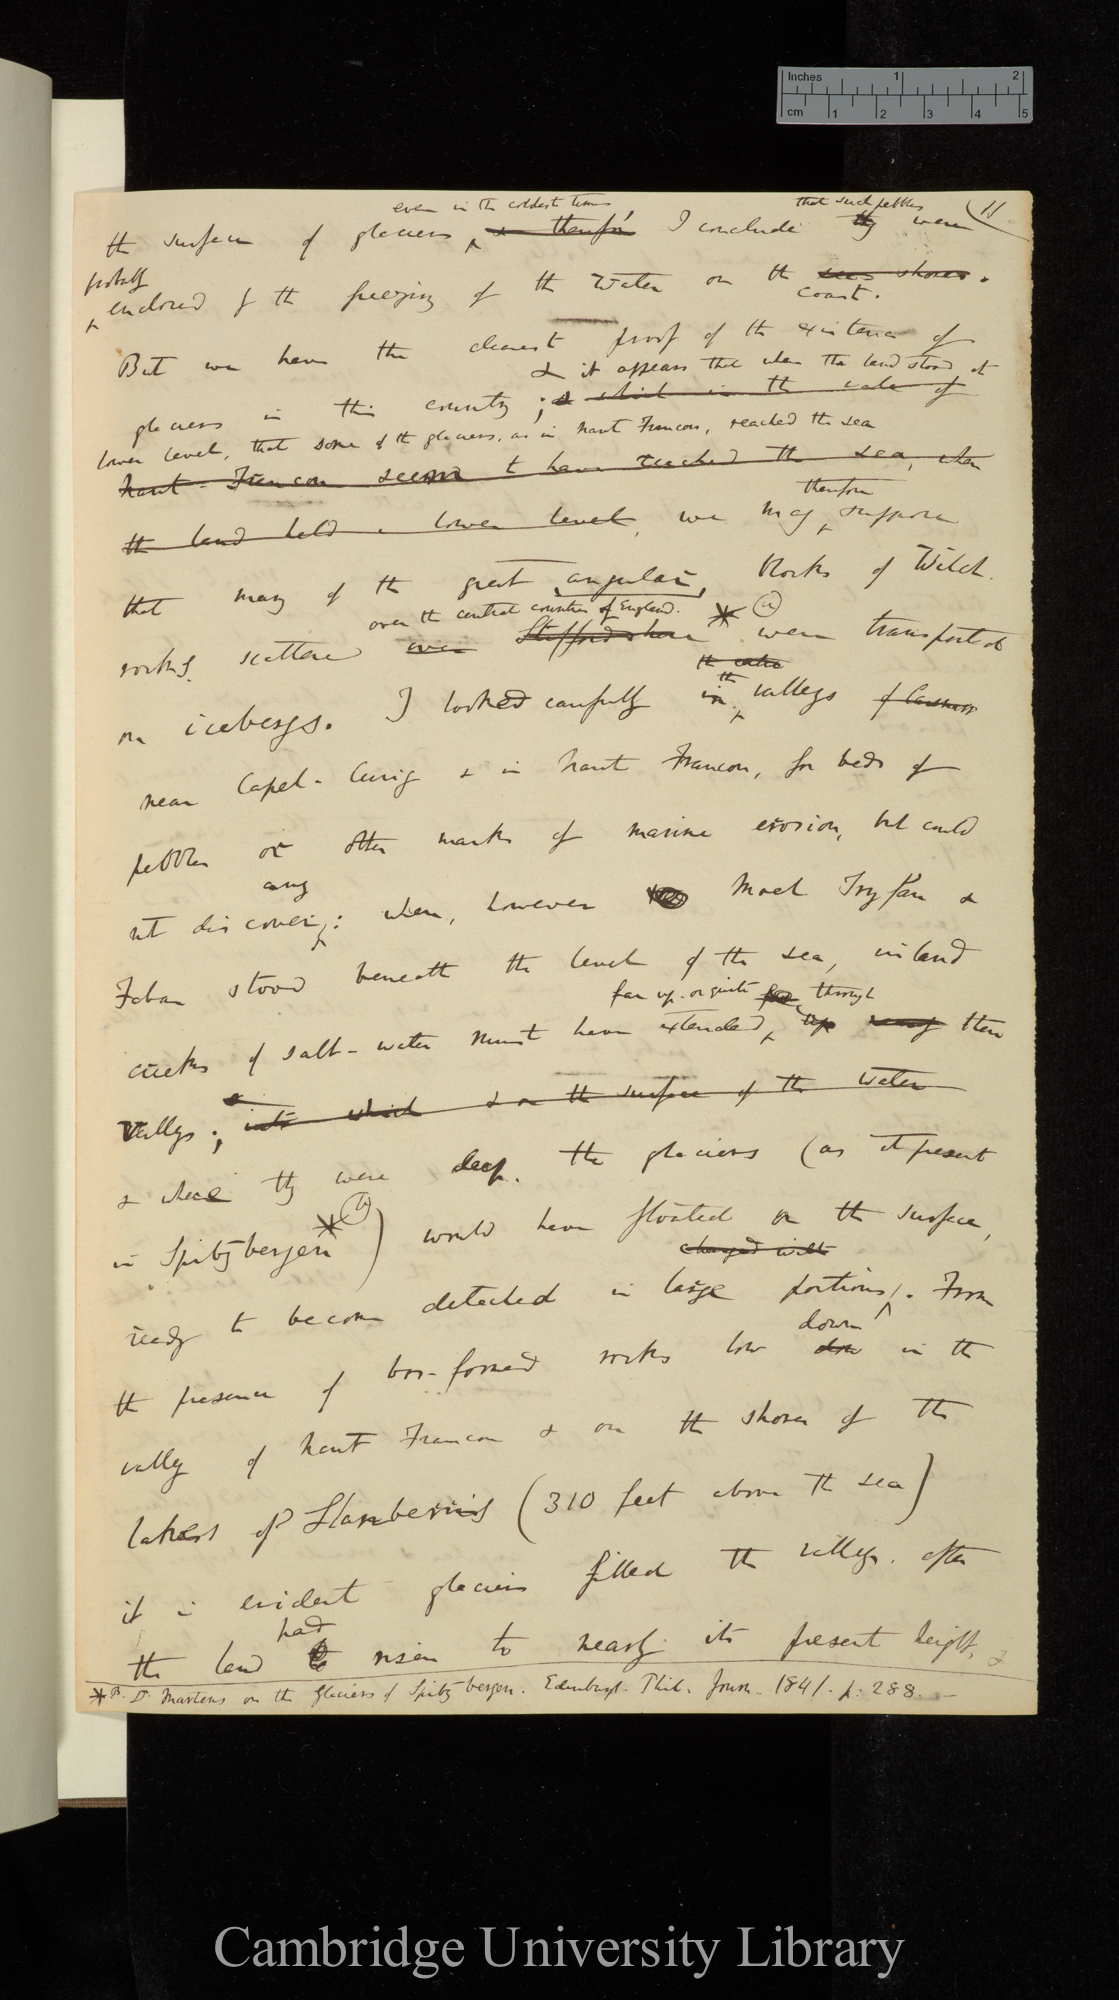 Inches 1 2
cm 1 2 3 4 5
11
even in the coldest times, that such pebbles
the surface of glaciers & therefore I conclude they were
probably
enclosed by the freezing of the water on the sea's shores.
coast.
But we have the clearest proof of the existence of
& it appears that when the land stood at
glaciers in this country; & which in the vale of
lower level, that some of the glaciers, as in Nant-Francon, reached the sea
Nant-Francon seem to have reached the sea, when
therefore
the land held a lower level, we may suppose
that many of the great angular blocks of Welch
over the central counties of England.
rocks, scattered over Staffordshire * (a) were transported
on icebergs. I looked carefully in the valleys
near Capel-Curig & in Nant Francon, for beds of
pebbles or other marks of marine erosion, but could
any
not discover: when, however Moel Tryfan &
Faban stood beneath the level of the sea, inland
far up. or quite through
creeks of salt-water must have extended, up nearly these
valleys; into which & on the surface of the water
& where they were deep, the glaciers (as at present
in Spitzbergen * (b)) would have floated on the surface,
charged with
ready to become detached in large portions. From
down
the presence of boss-formed rocks low in the
valley of Nant Francon & on the shores of the
lakes of Llanberris (310 feet above the sea)
it is evident glaciers filled the valleys, after
had
the land risen to nearly its present height, &
* B. Dr Martens on the glaciers of Spitzbergen. Edinburgh. Phil. Journ. 1841. p. 288.
Cambridge University Library